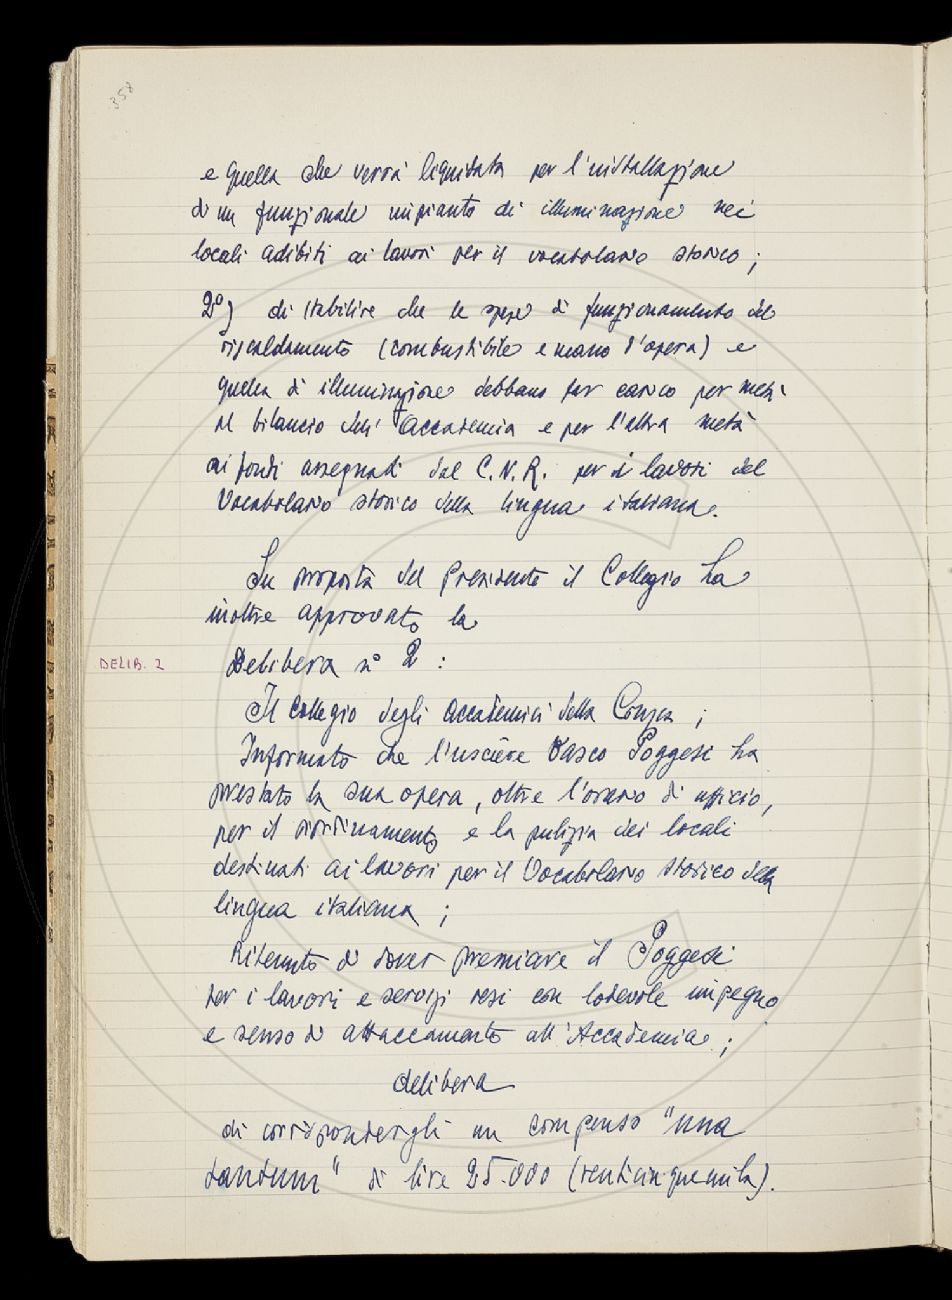 358
e quella che verrà liquitata per l'installazione
di un funzionale impianto di illuminazione nei
locali adibiti ai lavori per il vocabolario storico;
2º) di stabilire che le spese di funzionamento del
riscaldamento (combustibile e mano d'opera) e
quella di illuminazione debbano far carico per metà
al bilancio dell'Accademia e per l'altra metà
ai fondi assegnati dal C.N.R. per i lavori del
Vocabolario storico della lingua italiana.
Su proposta del Presidente il Collegio ha
inoltre approvato la
DELIB. 2
Delibera nº 2:
Il Collegio degli Accademici della Crusca;
Informato che l'usciere Vasco Poggesi ha
prestato la sua opera, oltre l'orario di ufficio,
per il riordinamento e la pulizia dei locali
destinati ai lavori per il Vocabolario storico della
lingua italiana;
Ritenuto di dover premiare il Poggesi
per i lavori e servizi resi con lodevole impegno
e senso di attaccamento all'Accademia;
delibera
di corrispondergli un compenso "una
tantum" di lire 25.000 (venticinquemila).